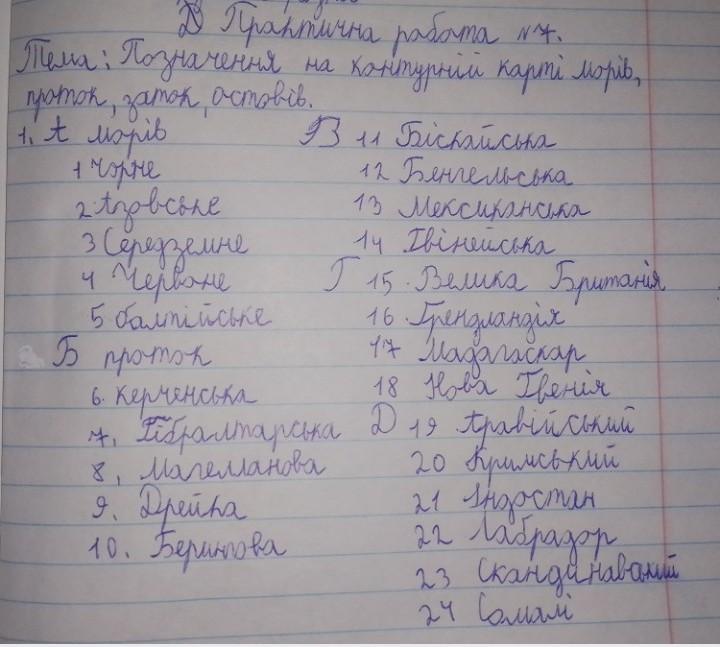 Практична работа №7.
Тема: Позначення на контурній карті морів,
проток, заток, остовів.
1. А морів
1 Чорне
2. Азовське
3 Середземне
4 Червоне
5 балтійське
Б проток
6. керченська
7. Гібралтарська
8, Магелланова
9. Дрейка
10. Берингова
В 11 Біскайська
12 Бенгельська
13 Мексиканська
14 Гвінейська
Г 15. Велика Британія
16. Грендландія
17 Мадагаскар
18 Нова Гвенія
Д 19 Аравійський
20 Кримський
21 Індостан
22 Лабрадор
23 Скандинавский
24 Сомалі